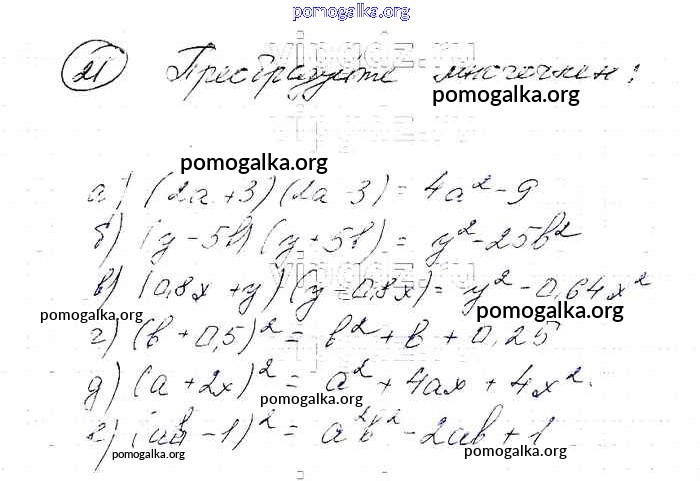 pomogalka.org
vipgdz.ru
21 Преобразуйте многочлен:
pomogalka.org
vipgdz.ru
pomogalka.org
а) (2a + 3)(2a - 3) = 4a² - 9
б) (y - 5b)(y + 5b) = y² - 25b²
vipgdz.ru
в) (0,8x + y)(y - 0,8x) = y² - 0,64x²
pomogalka.org pomogalka.org
г) (b + 0,5)² = b² + b + 0,25
д) (a + 2x)² = a² + 4ax + 4x².
pomogalka.org
е) (ab - 1)² = a²b² - 2ab + 1
pomogalka.org pomogalka.org